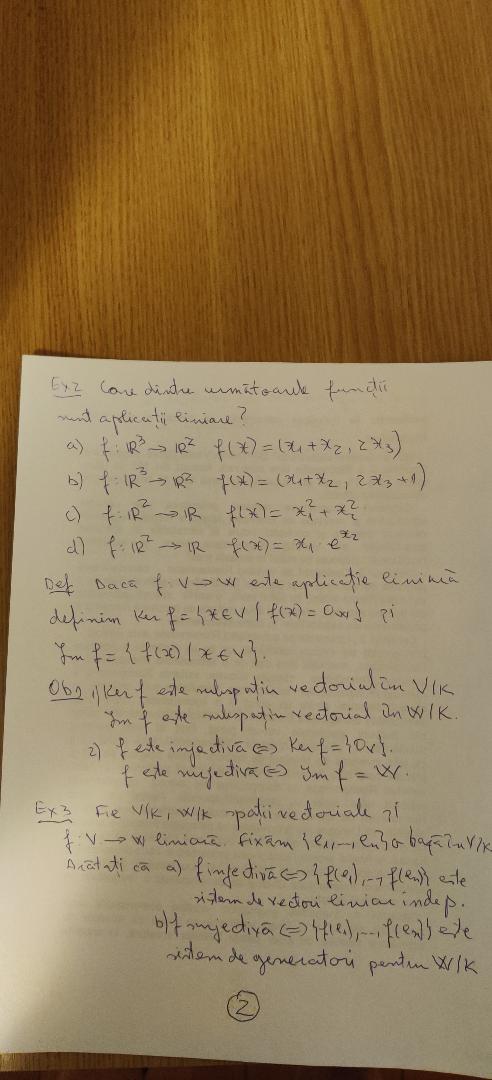 Ex2 Care dintre următoarele funcții
sunt aplicații liniare?
a) f: ℝ³ → ℝ² f(x) = (x₁+x₂, 2x₃)
b) f: ℝ³ → ℝ² f(x) = (x₁+x₂, 2x₃+1)
c) f: ℝ² → ℝ f(x) = x₁² + x₂²
d) f: ℝ² → ℝ f(x) = x₁ · e^x₂
Def Dacă f: V → W este aplicație liniară
definim Ker f = {x ∈ V / f(x) = 0_W} și
Im f = { f(x) / x ∈ V }.
Obs 1) Ker f este subspațiu vectorial în V/K
Im f este subspațiu vectorial în W/K.
2) f este injectivă ⇔ Ker f = {0_V}.
f este surjectivă ⇔ Im f = W.
Ex3 Fie V/K, W/K spații vectoriale și
f: V → W liniară. Fixăm {e₁,…,eₙ} o bază în V/K
Arătați că a) f injectivă ⇔ {f(e₁),…,f(eₙ)} este
sistem de vectori liniar indep.
b) f surjectivă ⇔ {f(e₁),…,f(eₙ)} este
sistem de generatori pentru W/K
2